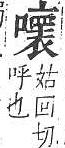 姑回切
呼也